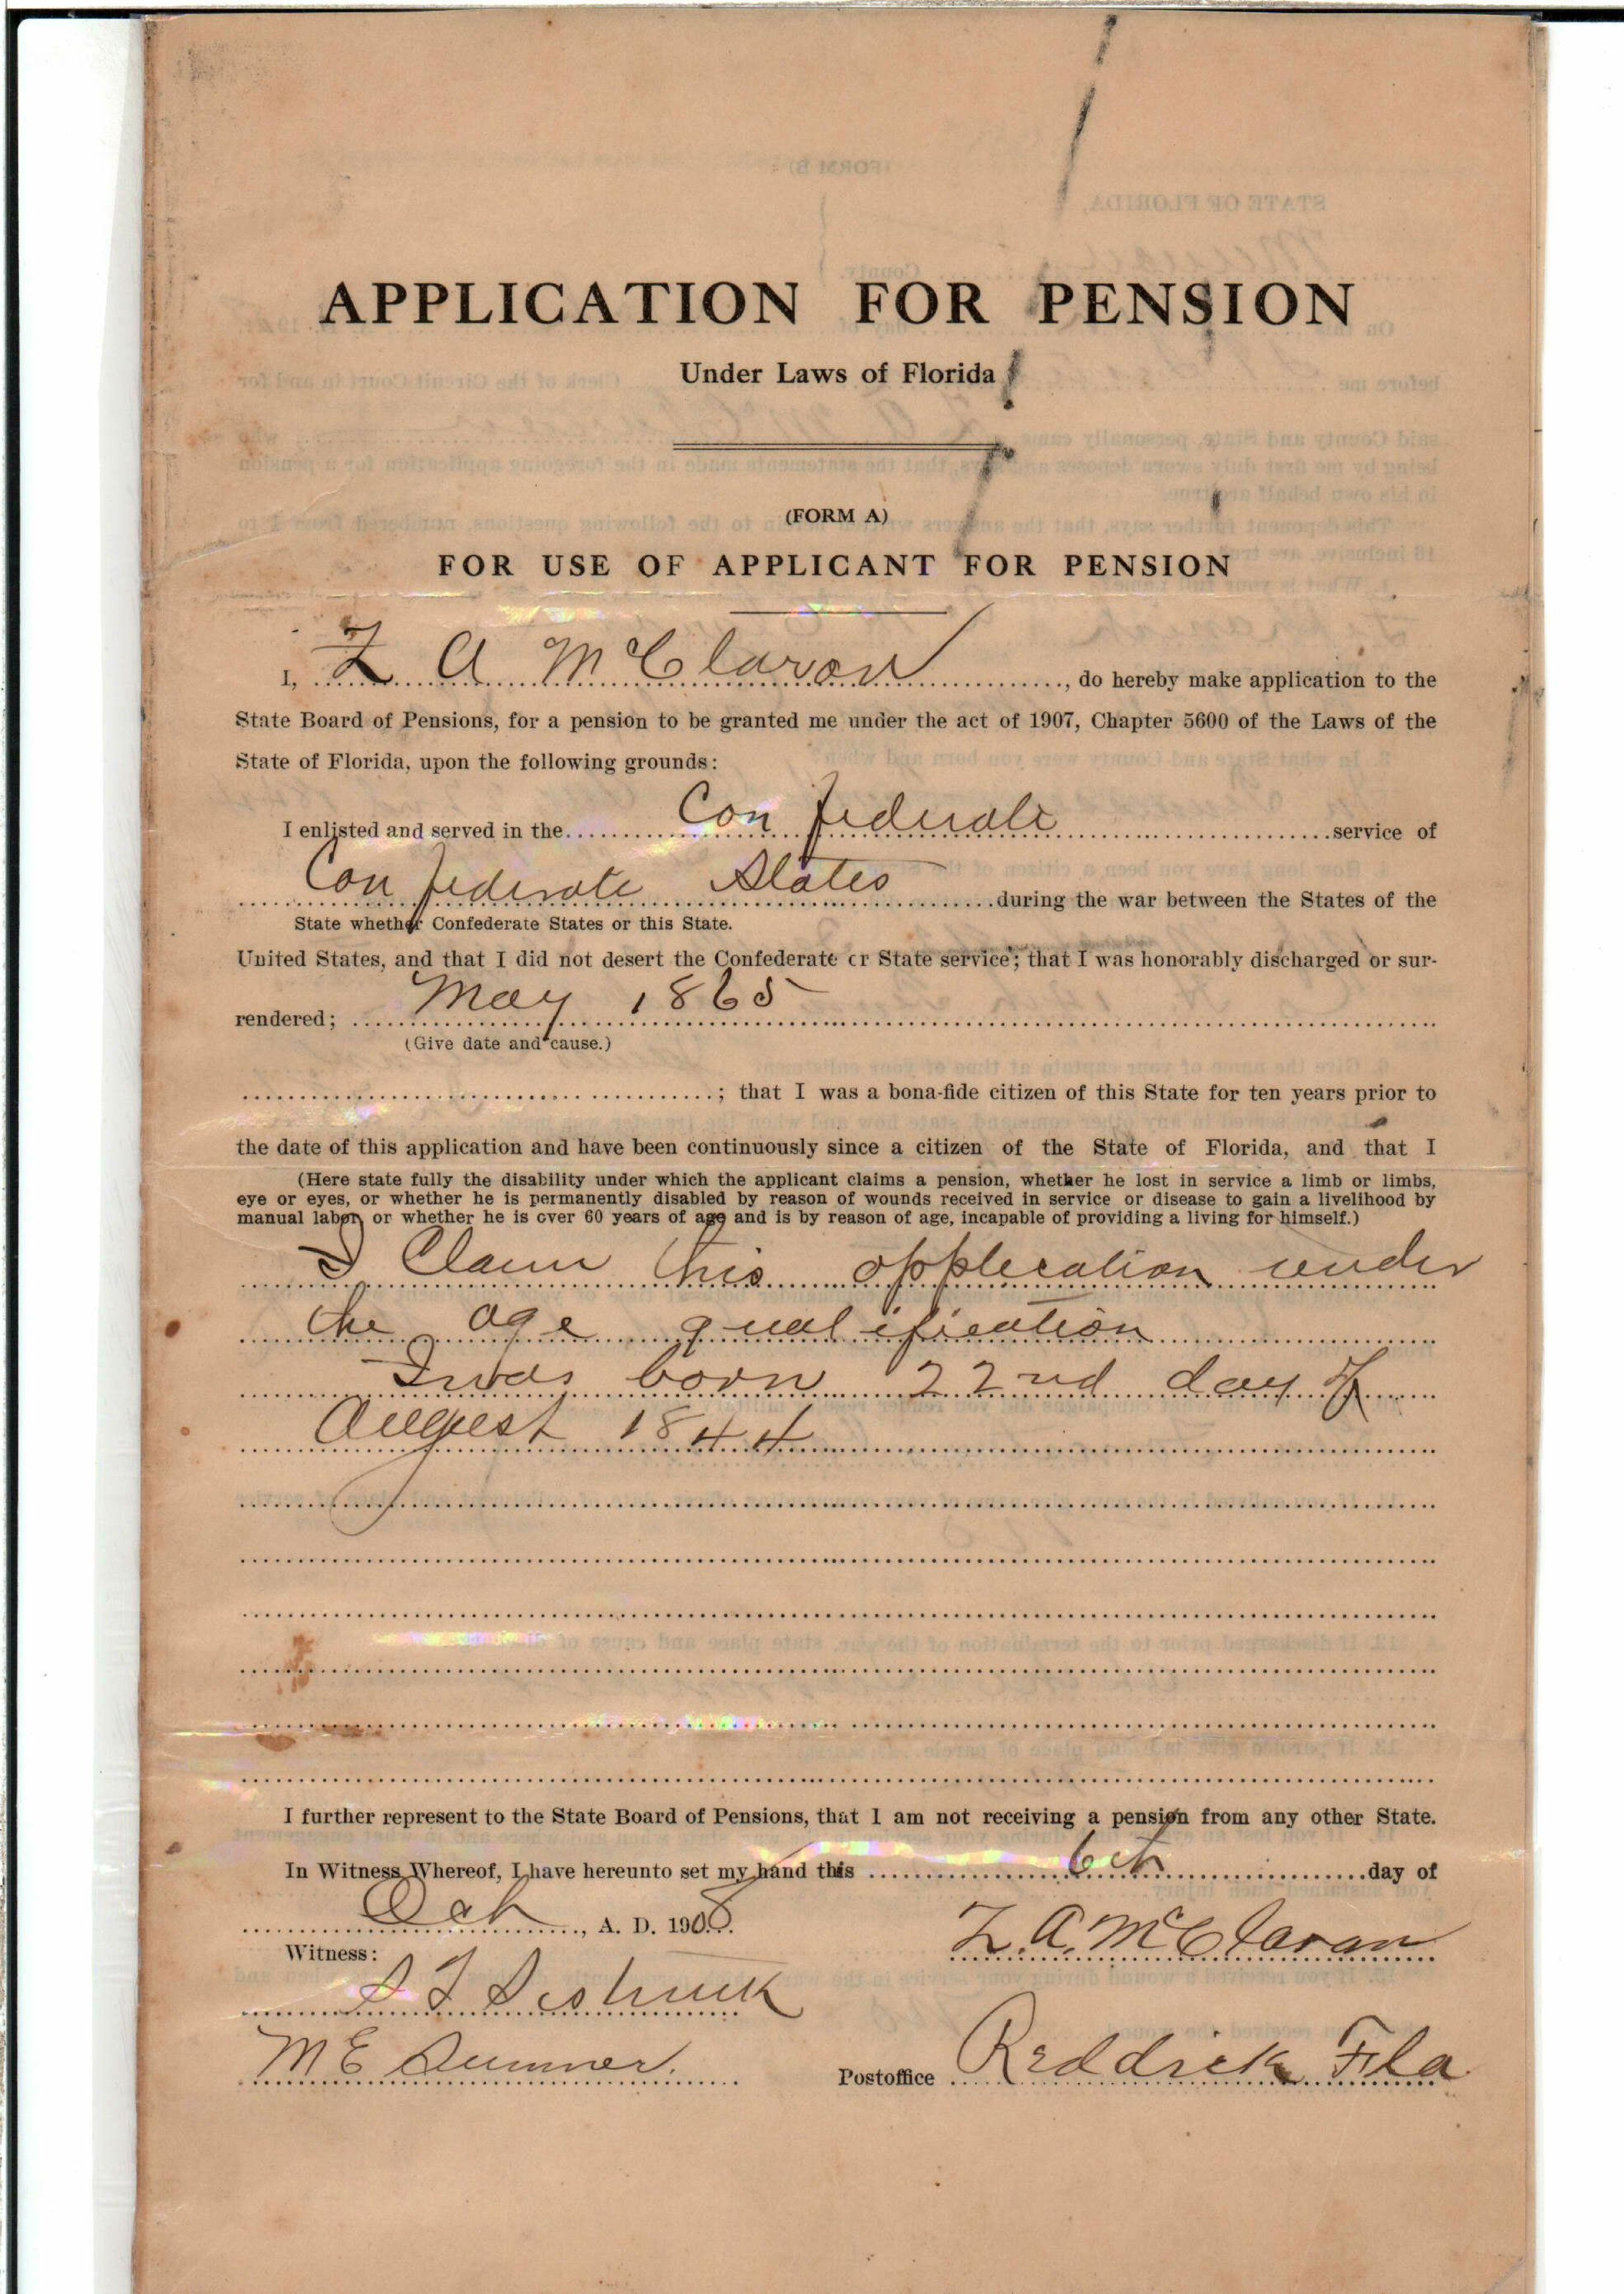 APPLICATION FOR PENSION
Under Laws of Florida
(FORM A)
FOR USE OF APPLICANT FOR PENSION
I, Z A McClaron, do hereby make application to the
State Board of Pensions, for a pension to be granted me under the act of 1907, Chapter 5600 of the Laws of the
State of Florida, upon the following grounds:
I enlisted and served in the Confederate service of
Confederate States during the war between the States of the
State whether Confederate States or this State.
United States, and that I did not desert the Confederate or State service; that I was honorably discharged or sur-
rendered; May 1865
(Give date and cause.)
; that I was a bona-fide citizen of this State for ten years prior to
the date of this application and have been continuously since a citizen of the State of Florida, and that I
(Here state fully the disability under which the applicant claims a pension, whether he lost in service a limb or limbs,
eye or eyes, or whether he is permanently disabled by reason of wounds received in service or disease to gain a livelihood by
manual labor, or whether he is over 60 years of age and is by reason of age, incapable of providing a living for himself.)
I Claim this application under
the age qualification
I was born 22nd day of
August 1844
I further represent to the State Board of Pensions, that I am not receiving a pension from any other State.
In Witness Whereof, I have hereunto set my hand this 6th day of
Oct, A. D. 1908.
Z. A. McClaran
Witness:
M E Sumner.
Postoffice Reddick Fla